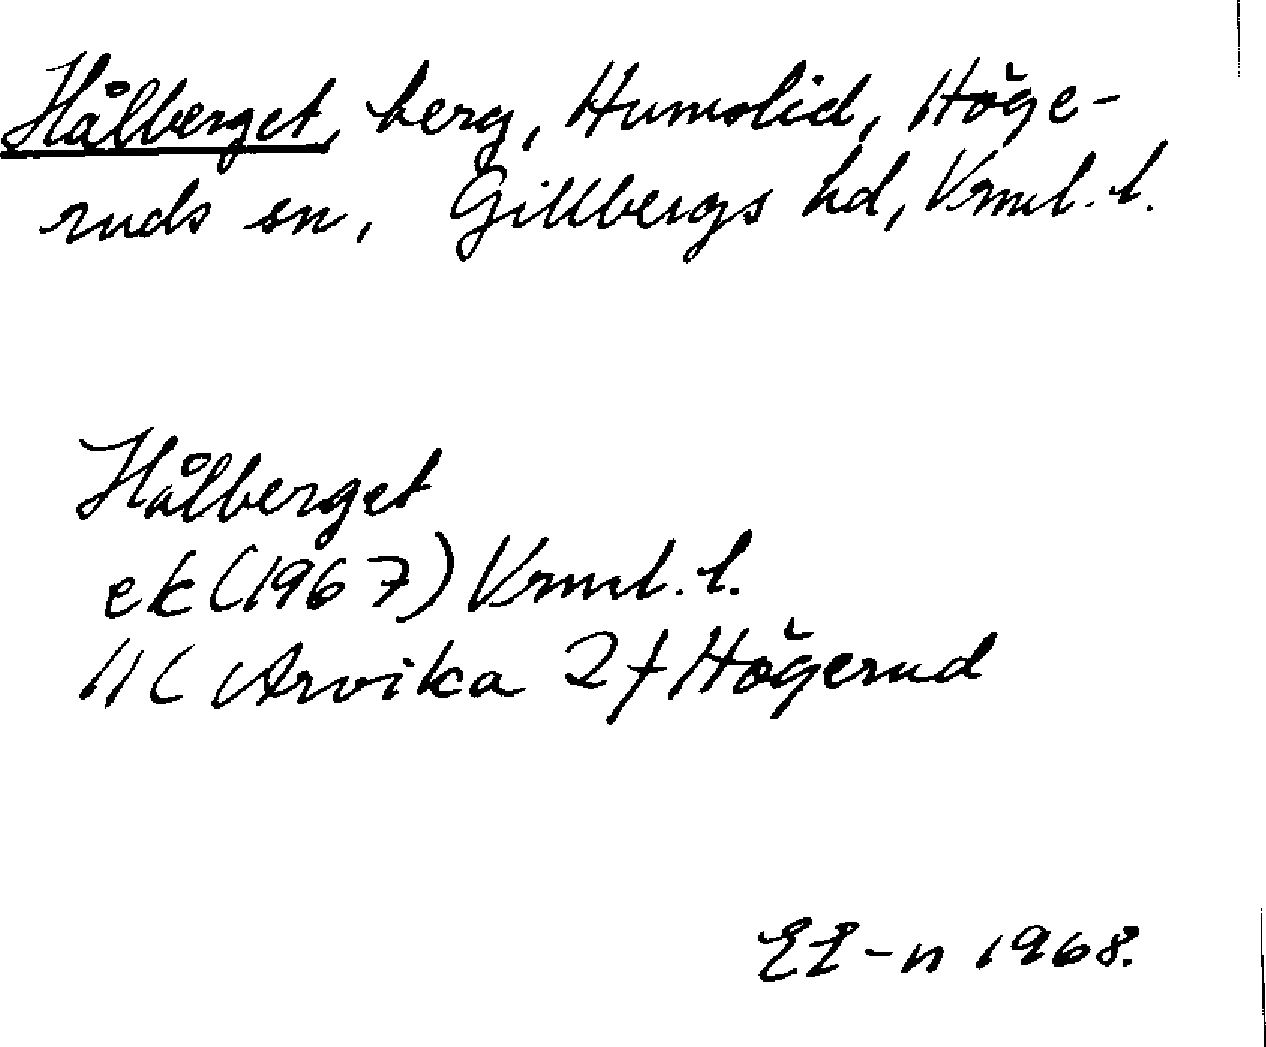 Hålberget, berg, Humslid, Höge-
ruds sn, Gillbergs hd, Vrml. l.
Hålberget
ek (1967) Vrml. l.
11C Arvika 2f Högerud
EE-n 1968.